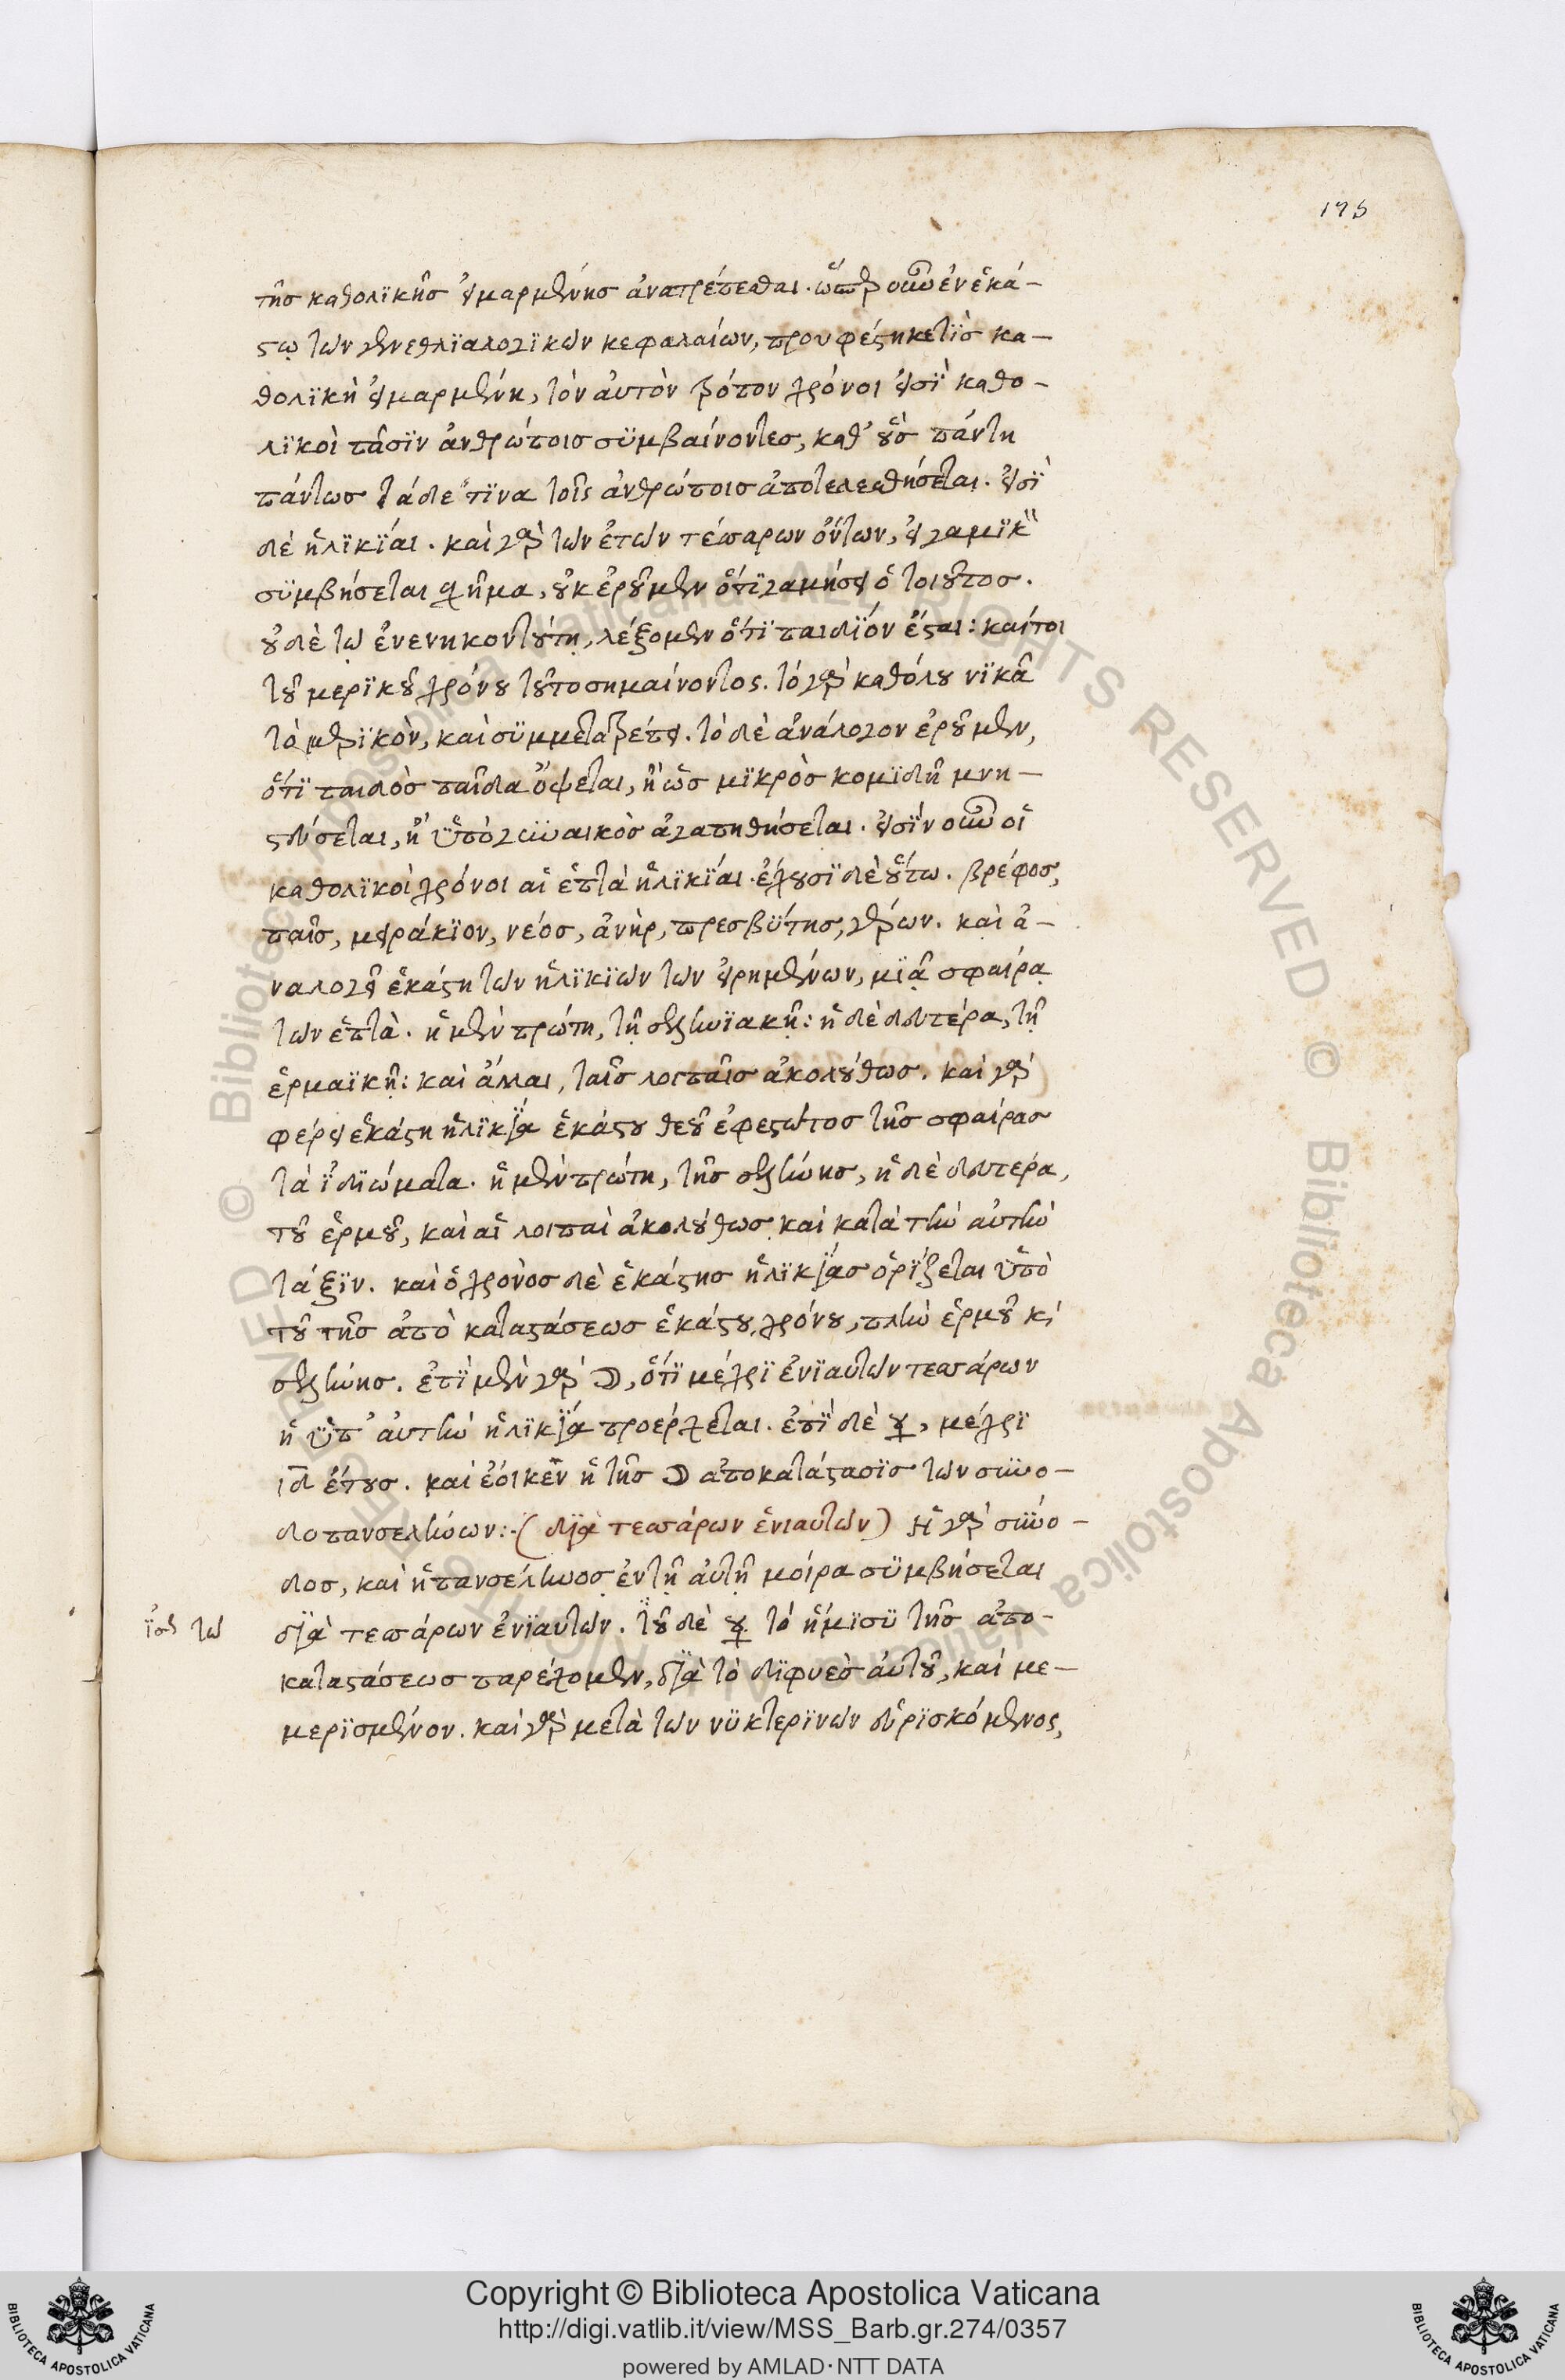 175
τῆσ καθολϊκῆσ εἱμαρμένησ ἀνατρέπεσθαι. ὥσπερ οὖν ἐν ἑκά-
στῳ τῶν γενεθλϊαλογϊκῶν κεφαλαίων, προυφέστηκε τϊσ κα-
θολϊκὴ εἱμαρμένη, τὸν ἀυτὸν τρόπον χρόνοι εἰσῒ καθο-
λϊκοὶ πᾶσϊν ἀνθρώποισ σϋμβαίνοντεσ, καθ' οὓσ πάντη
πάντωσ τάδε τϊνα τοῖς ἀνθρώποισ ἀποτελεσθήσεται. εἰσῒ
δὲ ἡλϊκϊάι. καὶ γὰρ τῶν ἐτῶν τέσσαρων ὄντων, εἰ γαμϊκὸν
σϋμβήσεται σχῆμα, οὐκ ἐροῦμεν ὅτϊ γαμήσει ὁ τοιοῦτοσ.
οὐδὲ τῷ ἐνενηκοντούτῃ, λέξομεν ὅτϊ παιδϊόν ἔσται: καίτοι
τοῦ μερϊκοῦ χρόνου τοῦτο σημαίνοντος. τὸ γὰρ καθόλου νϊκᾶ
τὸ μερϊκὸν, καὶ σϋμμετατρέπει. τὸ δὲ ἀνάλογον ἐροῦμεν,
ὅτϊ παιδὸσ παῖδα ὄψεται, ἢ ὡσ μϊκρὸσ κομϊδῆ μνη-
στεύσεται, ἢ ὑπὸ γυναικὸσ ἀγαπηθήσεται. εἰσῒν οὖν οἱ
καθολϊκοὶ χρόνοι αἱ ἑπτὰ ἡλϊκϊάι. ἔχουσϊ δὲ οὕτω. βρέφοσ,
παῖσ, μειράκϊον, νέοσ, ἀνὴρ, πρεσβΰτησ, γέρων. καὶ ἀ-
ναλογεῖ ἑκάστη τῶν ἡλϊκϊῶν τῶν εἰρημένων, μϊᾷ σφαίρᾳ
τῶν ἑπτὰ. ἡ μὲν πρώτη, τῇ σεληνϊακῇ: ἡ δὲ δευτέρα, τῇ
ἑρμαϊκῇ: καὶ ἄλλαι, ταῖσ λοιπαῖσ ἀκολούθωσ. καὶ γὰρ
φέρει ἑκάστη ἡλϊκϊα ἑκάστου θεοῦ ἐφεστῶτοσ τῆσ σφαίρασ
τὰ ἰδϊώματα. ἡ μὲν πρώτη, τῆσ σελήνησ, ἡ δὲ δευτέρα,
τοῦ ἑρμοῦ, καὶ αἱ λοιπαὶ ἀκολούθωσ καὶ κατὰ τὴν ἀυτὴν
τάξϊν. καὶ ὁ χρονὸσ δὲ ἑκάστησ ἡλϊκϊάσ ὁρΐζεται ὑπὸ
τοῦ τῆσ ἀπὸ καταστάσεωσ ἑκάστου, χρόνου, πλὴν ἑρμοῦ κ,
σελήνησ. ἐπῒ μὲν γὰρ ☽, ὅτϊ μέχρϊ ἐνϊαυτῶν τεσσάρων
ἡ ὑπ' ἀυτὴν ἡλϊκϊά προέρχεται. ἐπῒ δὲ ☿, μέχρϊ
ιδ ἔτουσ. καὶ ἐόικεν ἡ τῆσ ☽ ἀποκατάστασϊσ τῶν συνο-
δοπανσελήνων:. (δϊὰ τεσσάρων ἐνιαυτῶν) Η γὰρ σύνο-
δοσ, καὶ ἡ πανσέληνοσ ἐν τῇ ἀυτῇ μοίρα σϋμβήσεται
δϊὰ τεσσάρων ἐνϊαυτῶν. τοῦ δὲ ☿ τὸ ἥμϊσϋ τῆσ ἀπο-
καταστάσεωσ παρέχομεν, δϊὰ τὸ δϊφυὲσ ἀυτοῦ, καὶ με-
μερϊσμένον. καὶ γὰρ μετὰ τῶν νϋκτερϊνῶν εὑρϊσκόμενος,
Copyright © Biblioteca Apostolica Vaticana
http://digi.vatlib.it/view/MSS_Barb.gr.274/0357
powered by AMLAD·NTT DATA